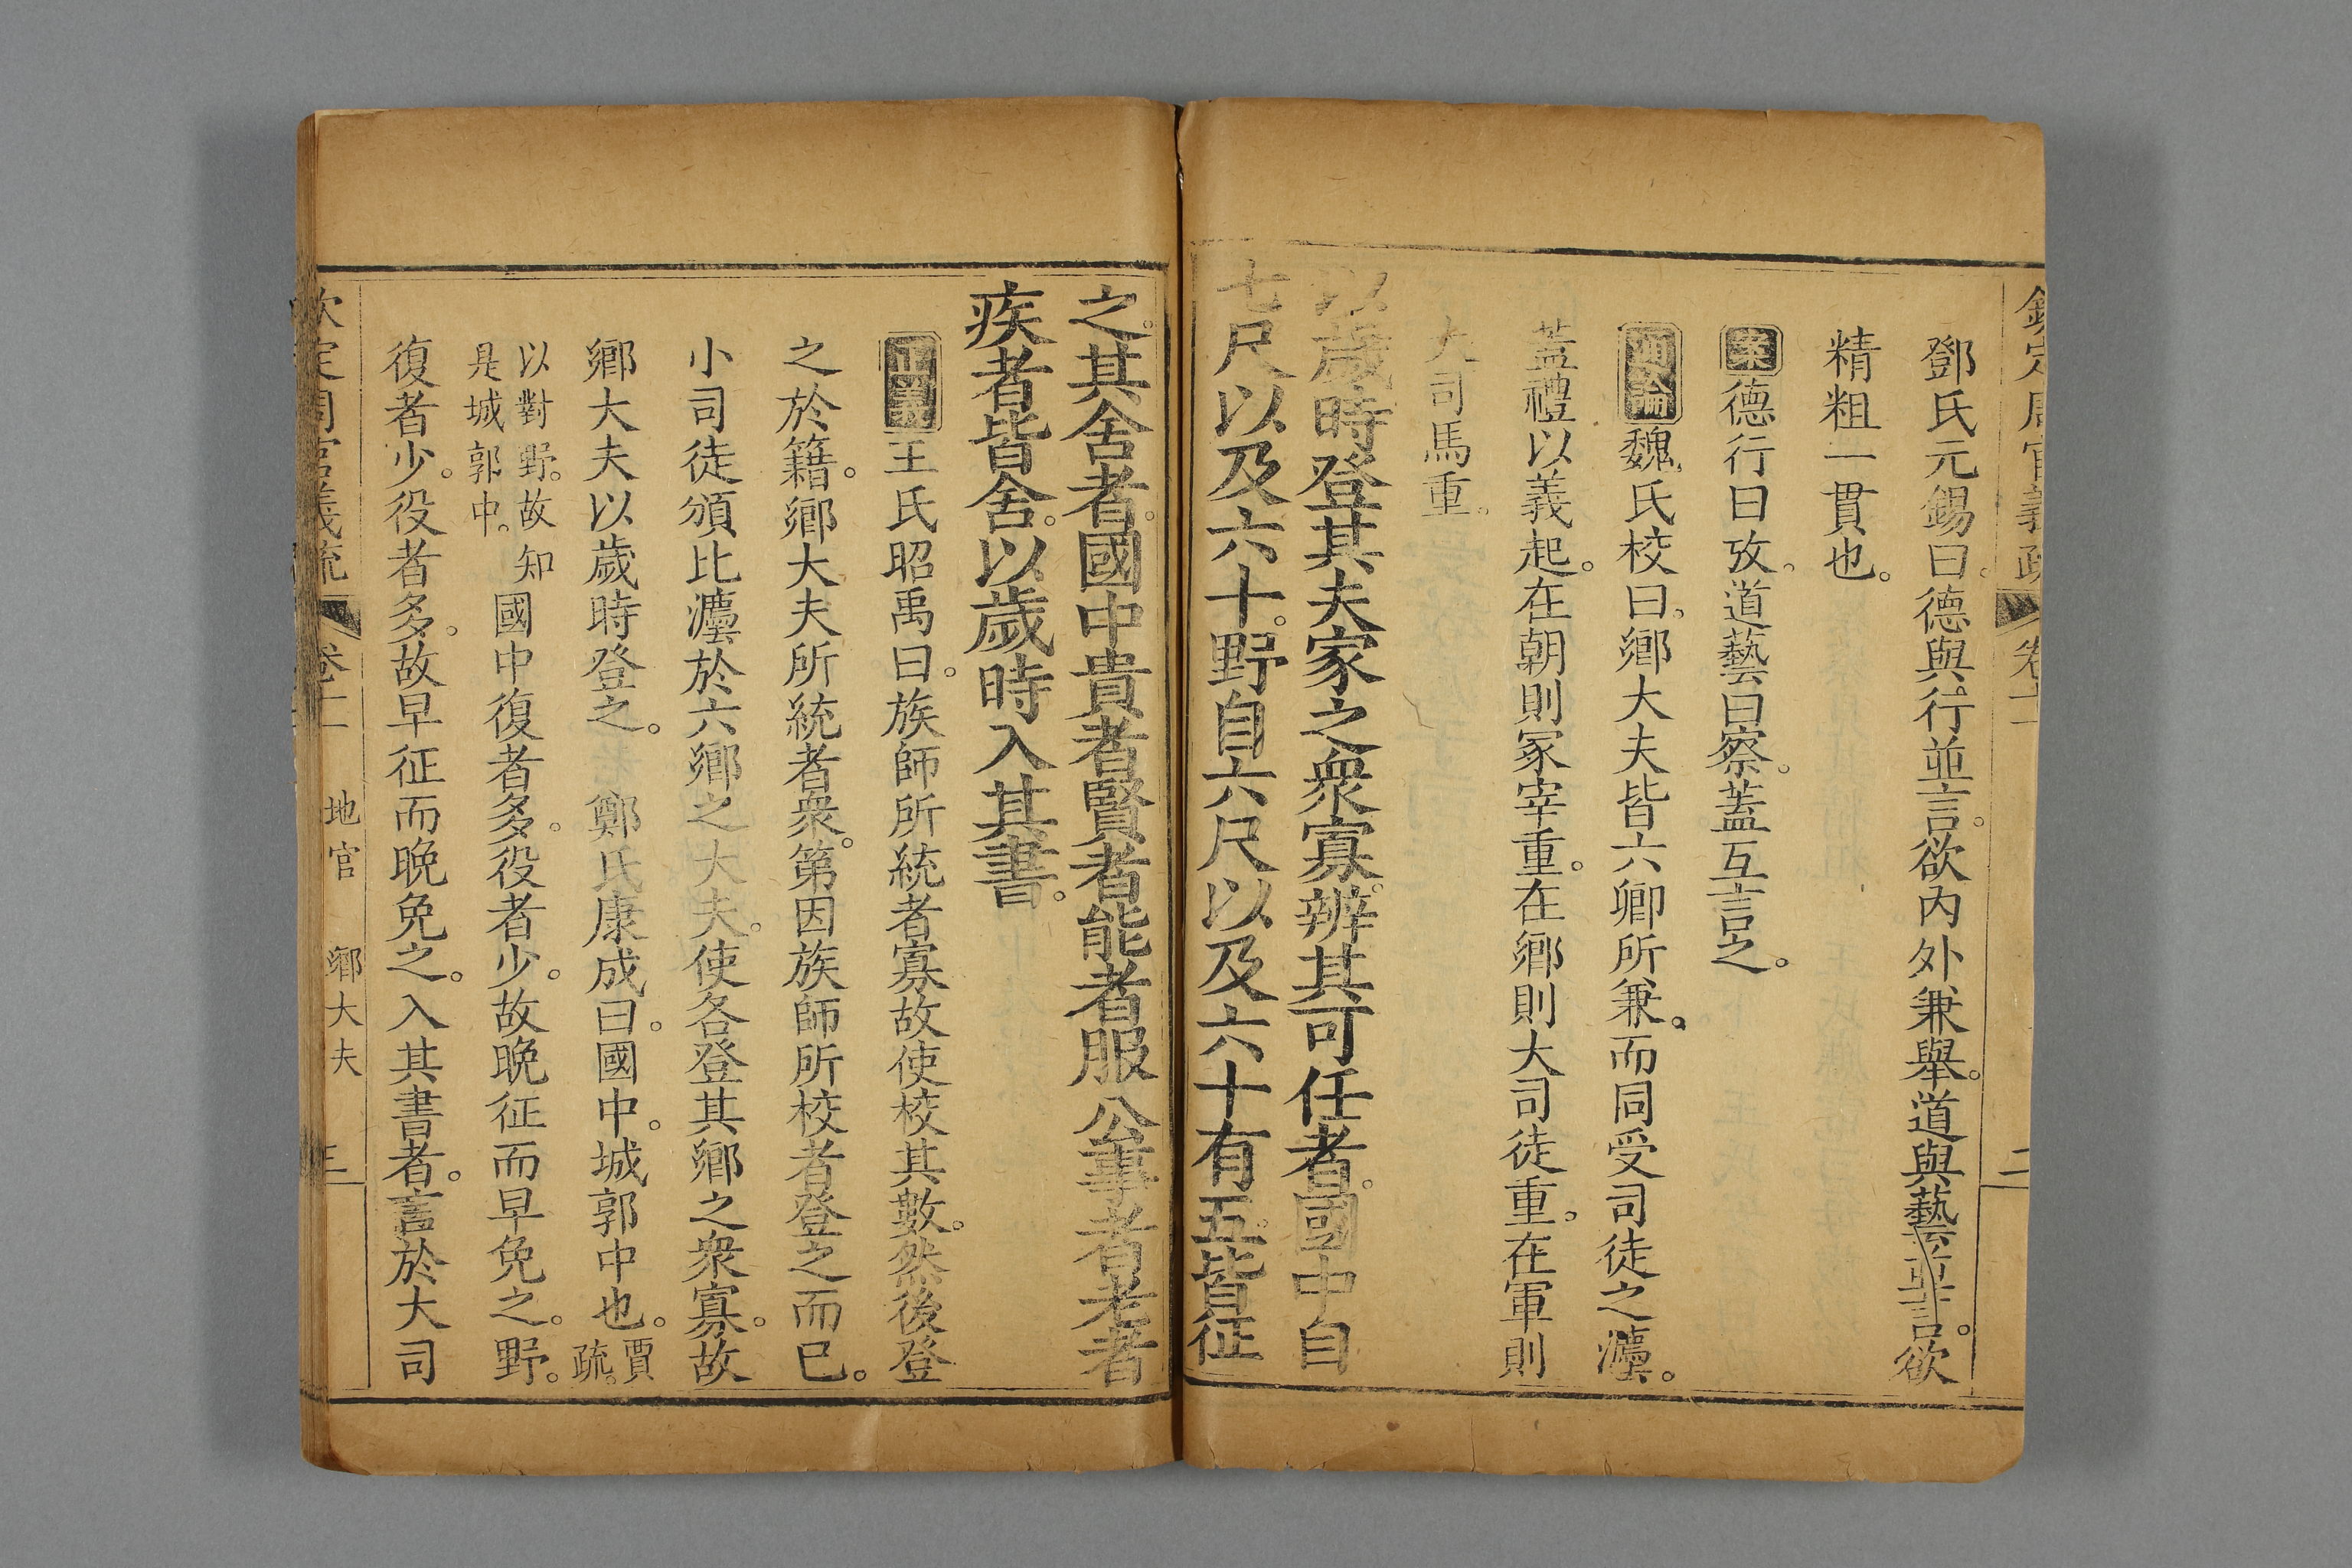 欽定周官義疏 卷十一 二
鄧氏元錫曰。德與行並言。欲內外兼舉。道與藝並言。欲
精粗一貫也。
案德行曰攷。道藝曰察。蓋互言之。
通論魏氏校曰。鄉大夫皆六卿所兼。而同受司徒之灋。
蓋禮以義起。在朝則冢宰重。在鄉則大司徒重。在軍則
大司馬重。
以歲時登其夫家之衆寡。辨其可任者。國中自
七尺以及六十。野自六尺以及六十有五。皆征
之。其舍者。國中貴者賢者能者服公事者老者
疾者皆舍。以歲時入其書。
正義王氏昭禹曰。族師所統者寡故使校其數。然後登
之於籍。鄉大夫所統者衆。第因族師所校者登之而已。
小司徒頒比灋於六鄉之大夫。使各登其鄉之衆寡。故
鄉大夫以歲時登之。 鄭氏康成曰。國中。城郭中也。賈疏。
以對野。故知
是城郭中。
國中復者多。役者少。故晚征而早免之。野。
復者少。役者多。故早征而晚免之。入其書者。言於大司
欽定周官義疏 卷十一 地官 鄉大夫 三